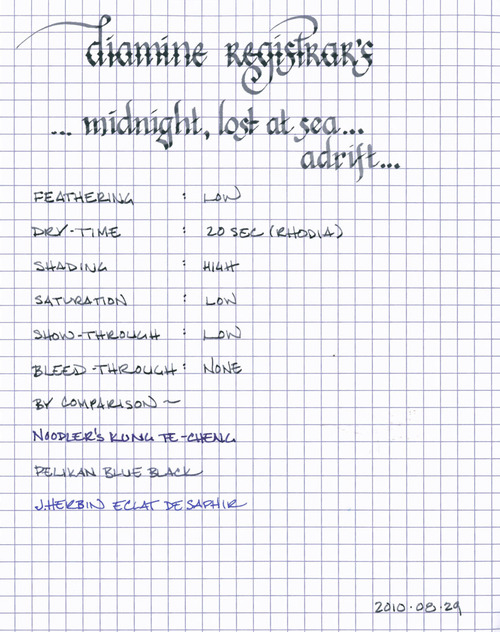 diamine registrar's
... midnight, lost at sea...
adrift...
FEATHERING : LOW
DRY-TIME : 20 SEC (RHODIA)
SHADING : HIGH
SATURATION : LOW
SHOW-THROUGH : LOW
BLEED-THROUGH : NONE
BY COMPARISON ~
NOODLER'S KUNG TE-CHENG
PELIKAN BLUE BLACK
J.HERBIN ECLAT DE SAPHIR
2010.08.29